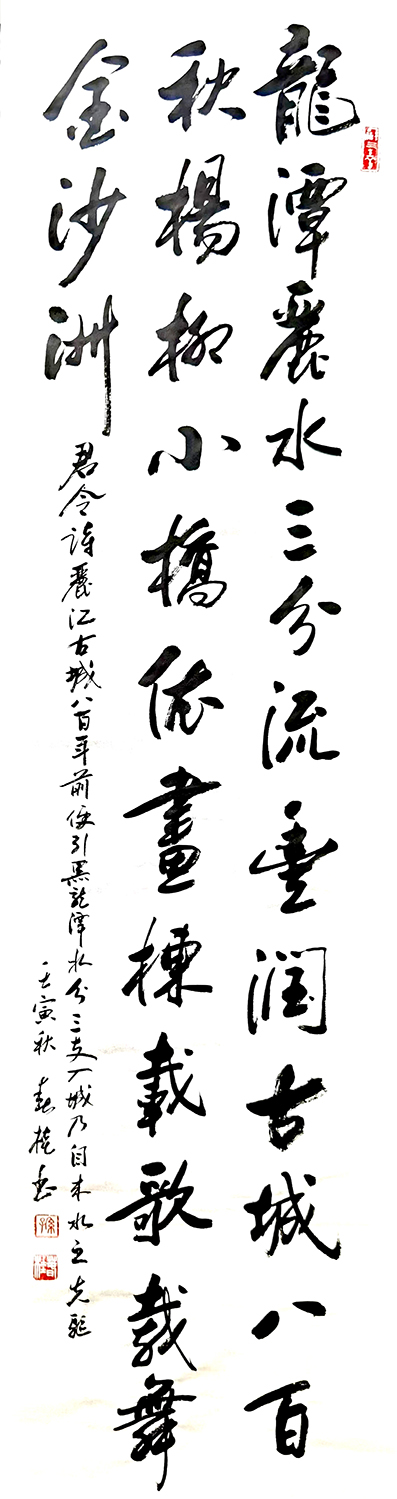 龍潭麗水三分流潤古城八百
秋楊柳小橋依畫棟載歌載舞
金沙洲
君令詩麗江古城八百年前便引黑龍潭水分三支入城乃自来水之先驅
壬寅秋 春書